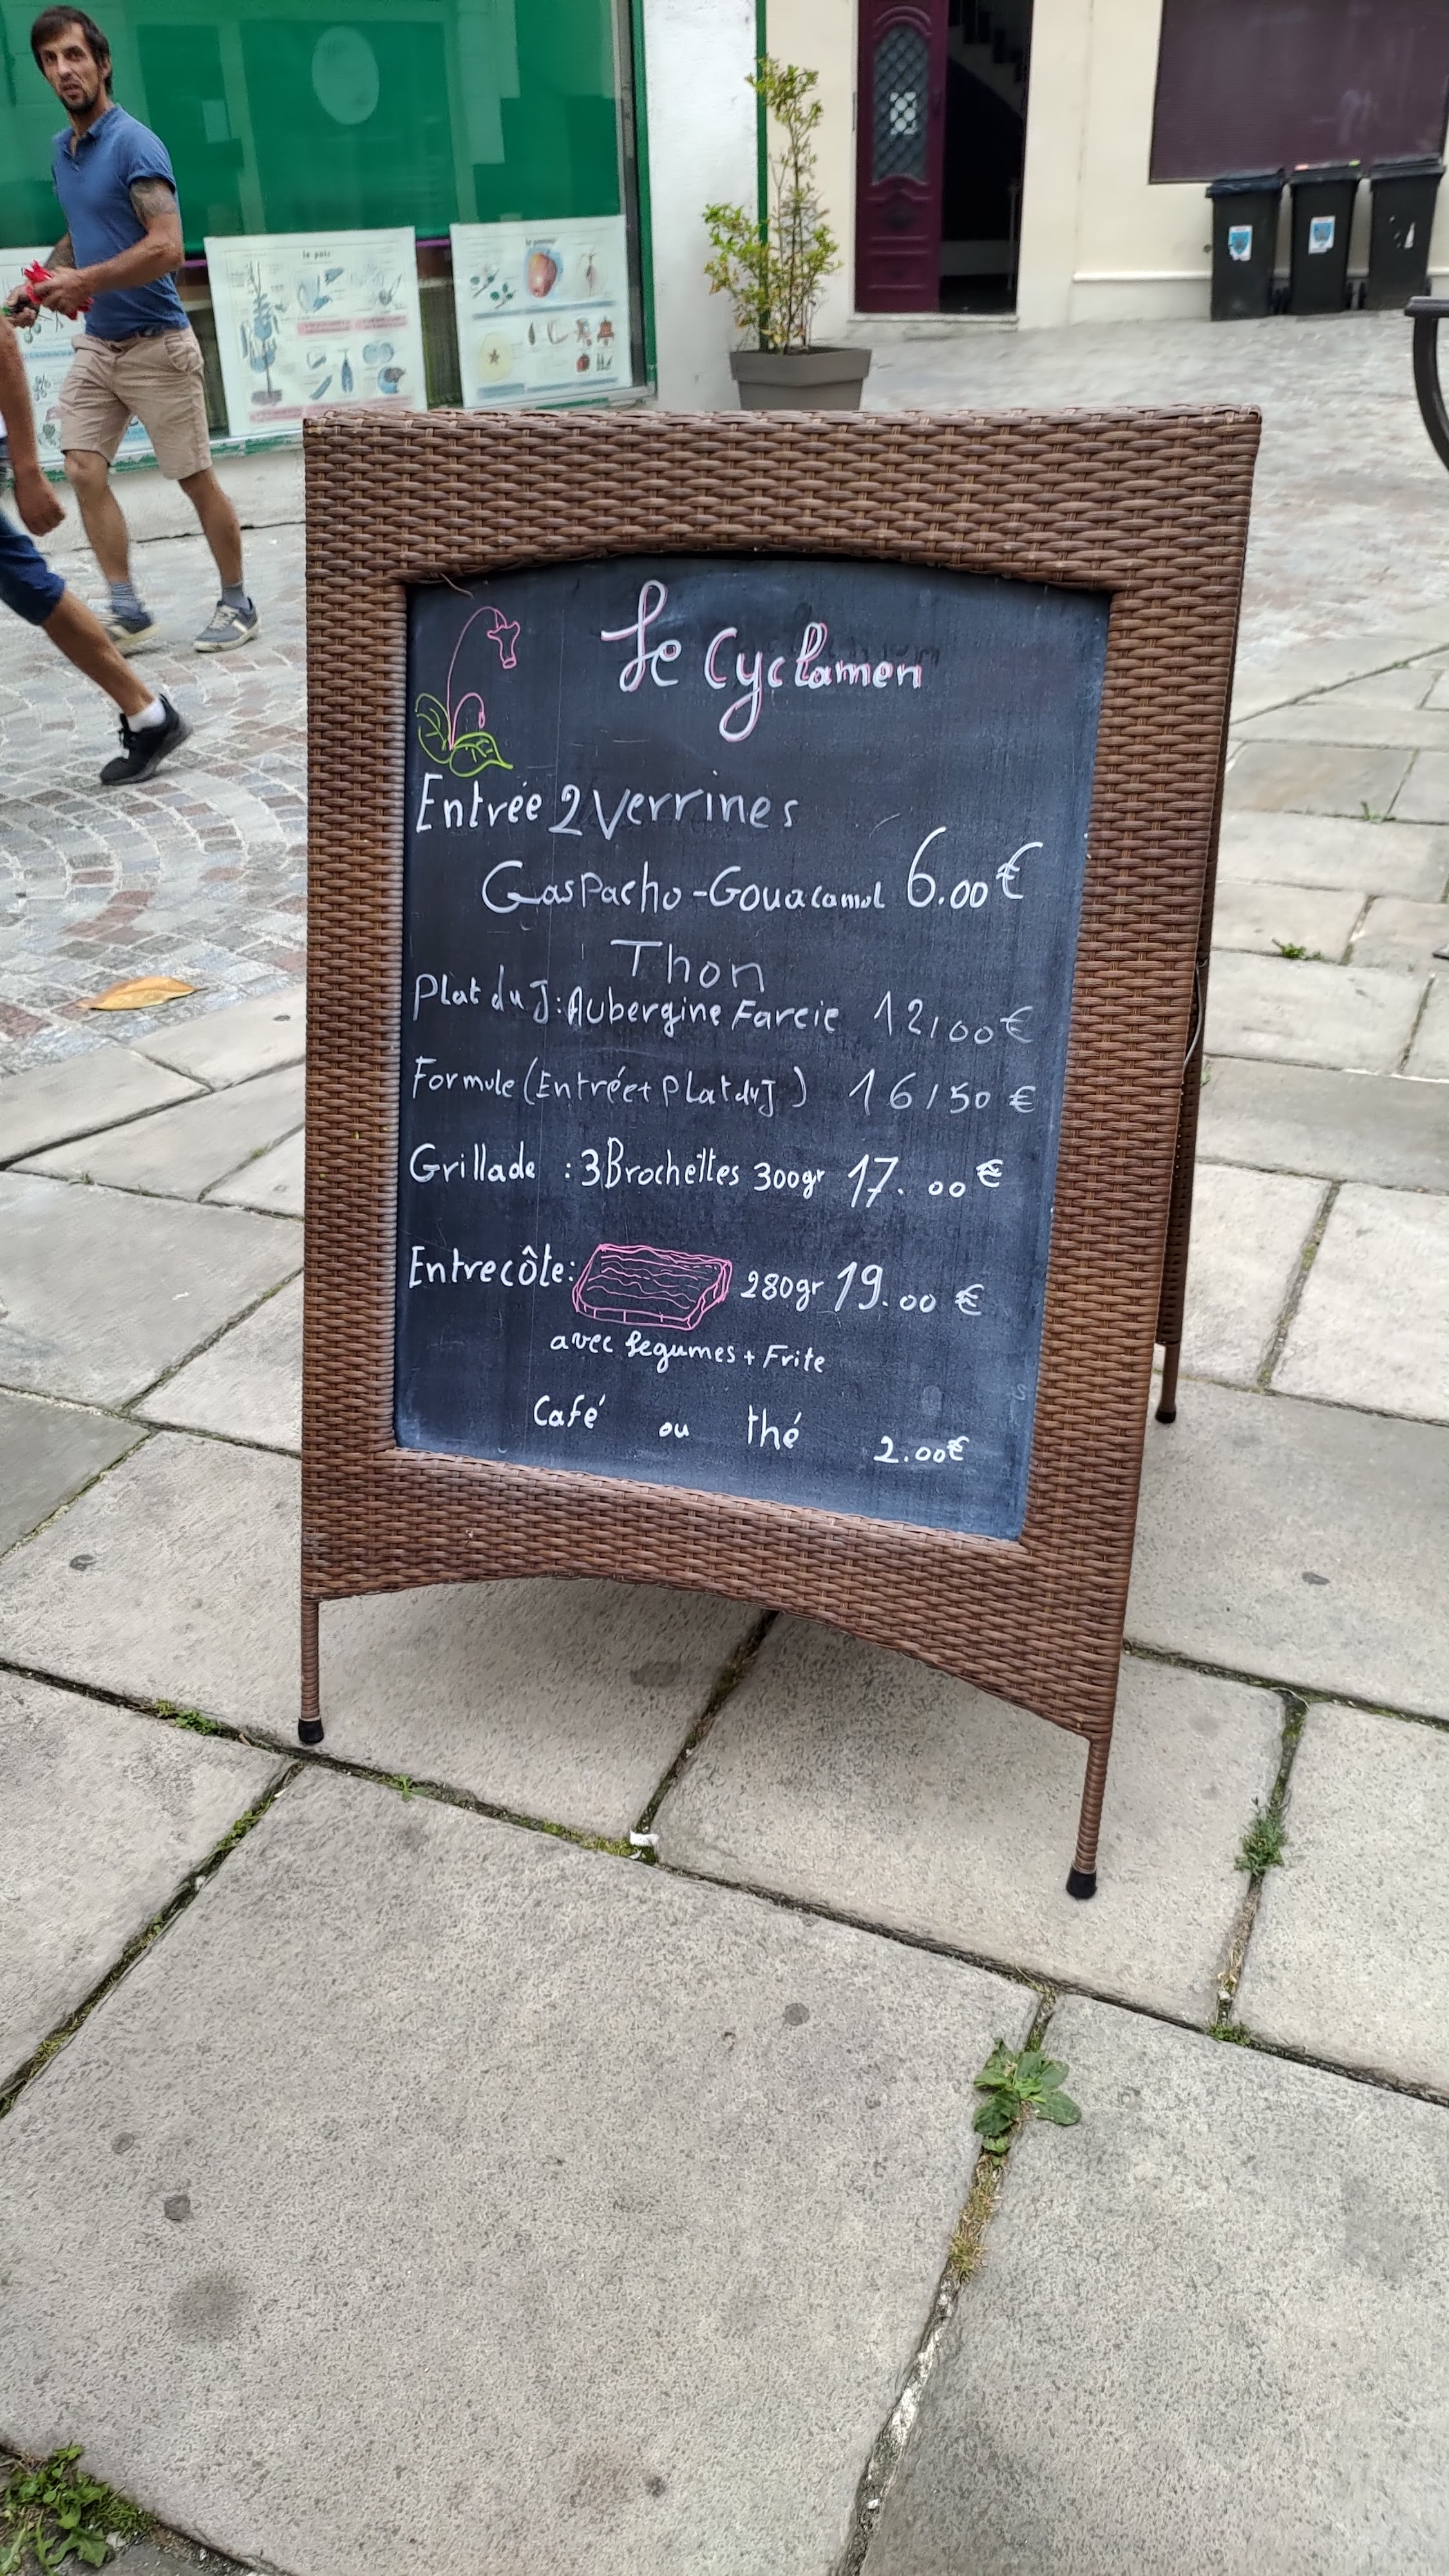 le pois
la pomme
Le Cyclamen
Entrée 2 Verrines
Gaspacho - Gouacamol 6.00€
Thon
Plat du J : Aubergine Farcie 12,00€
Formule (Entrée + Plat du J) 16,50 €
Grillade : 3 Brochettes 300gr 17.00€
Entrecôte: 280gr 19.00 €
avec legumes + Frite
Café ou thé 2.00€